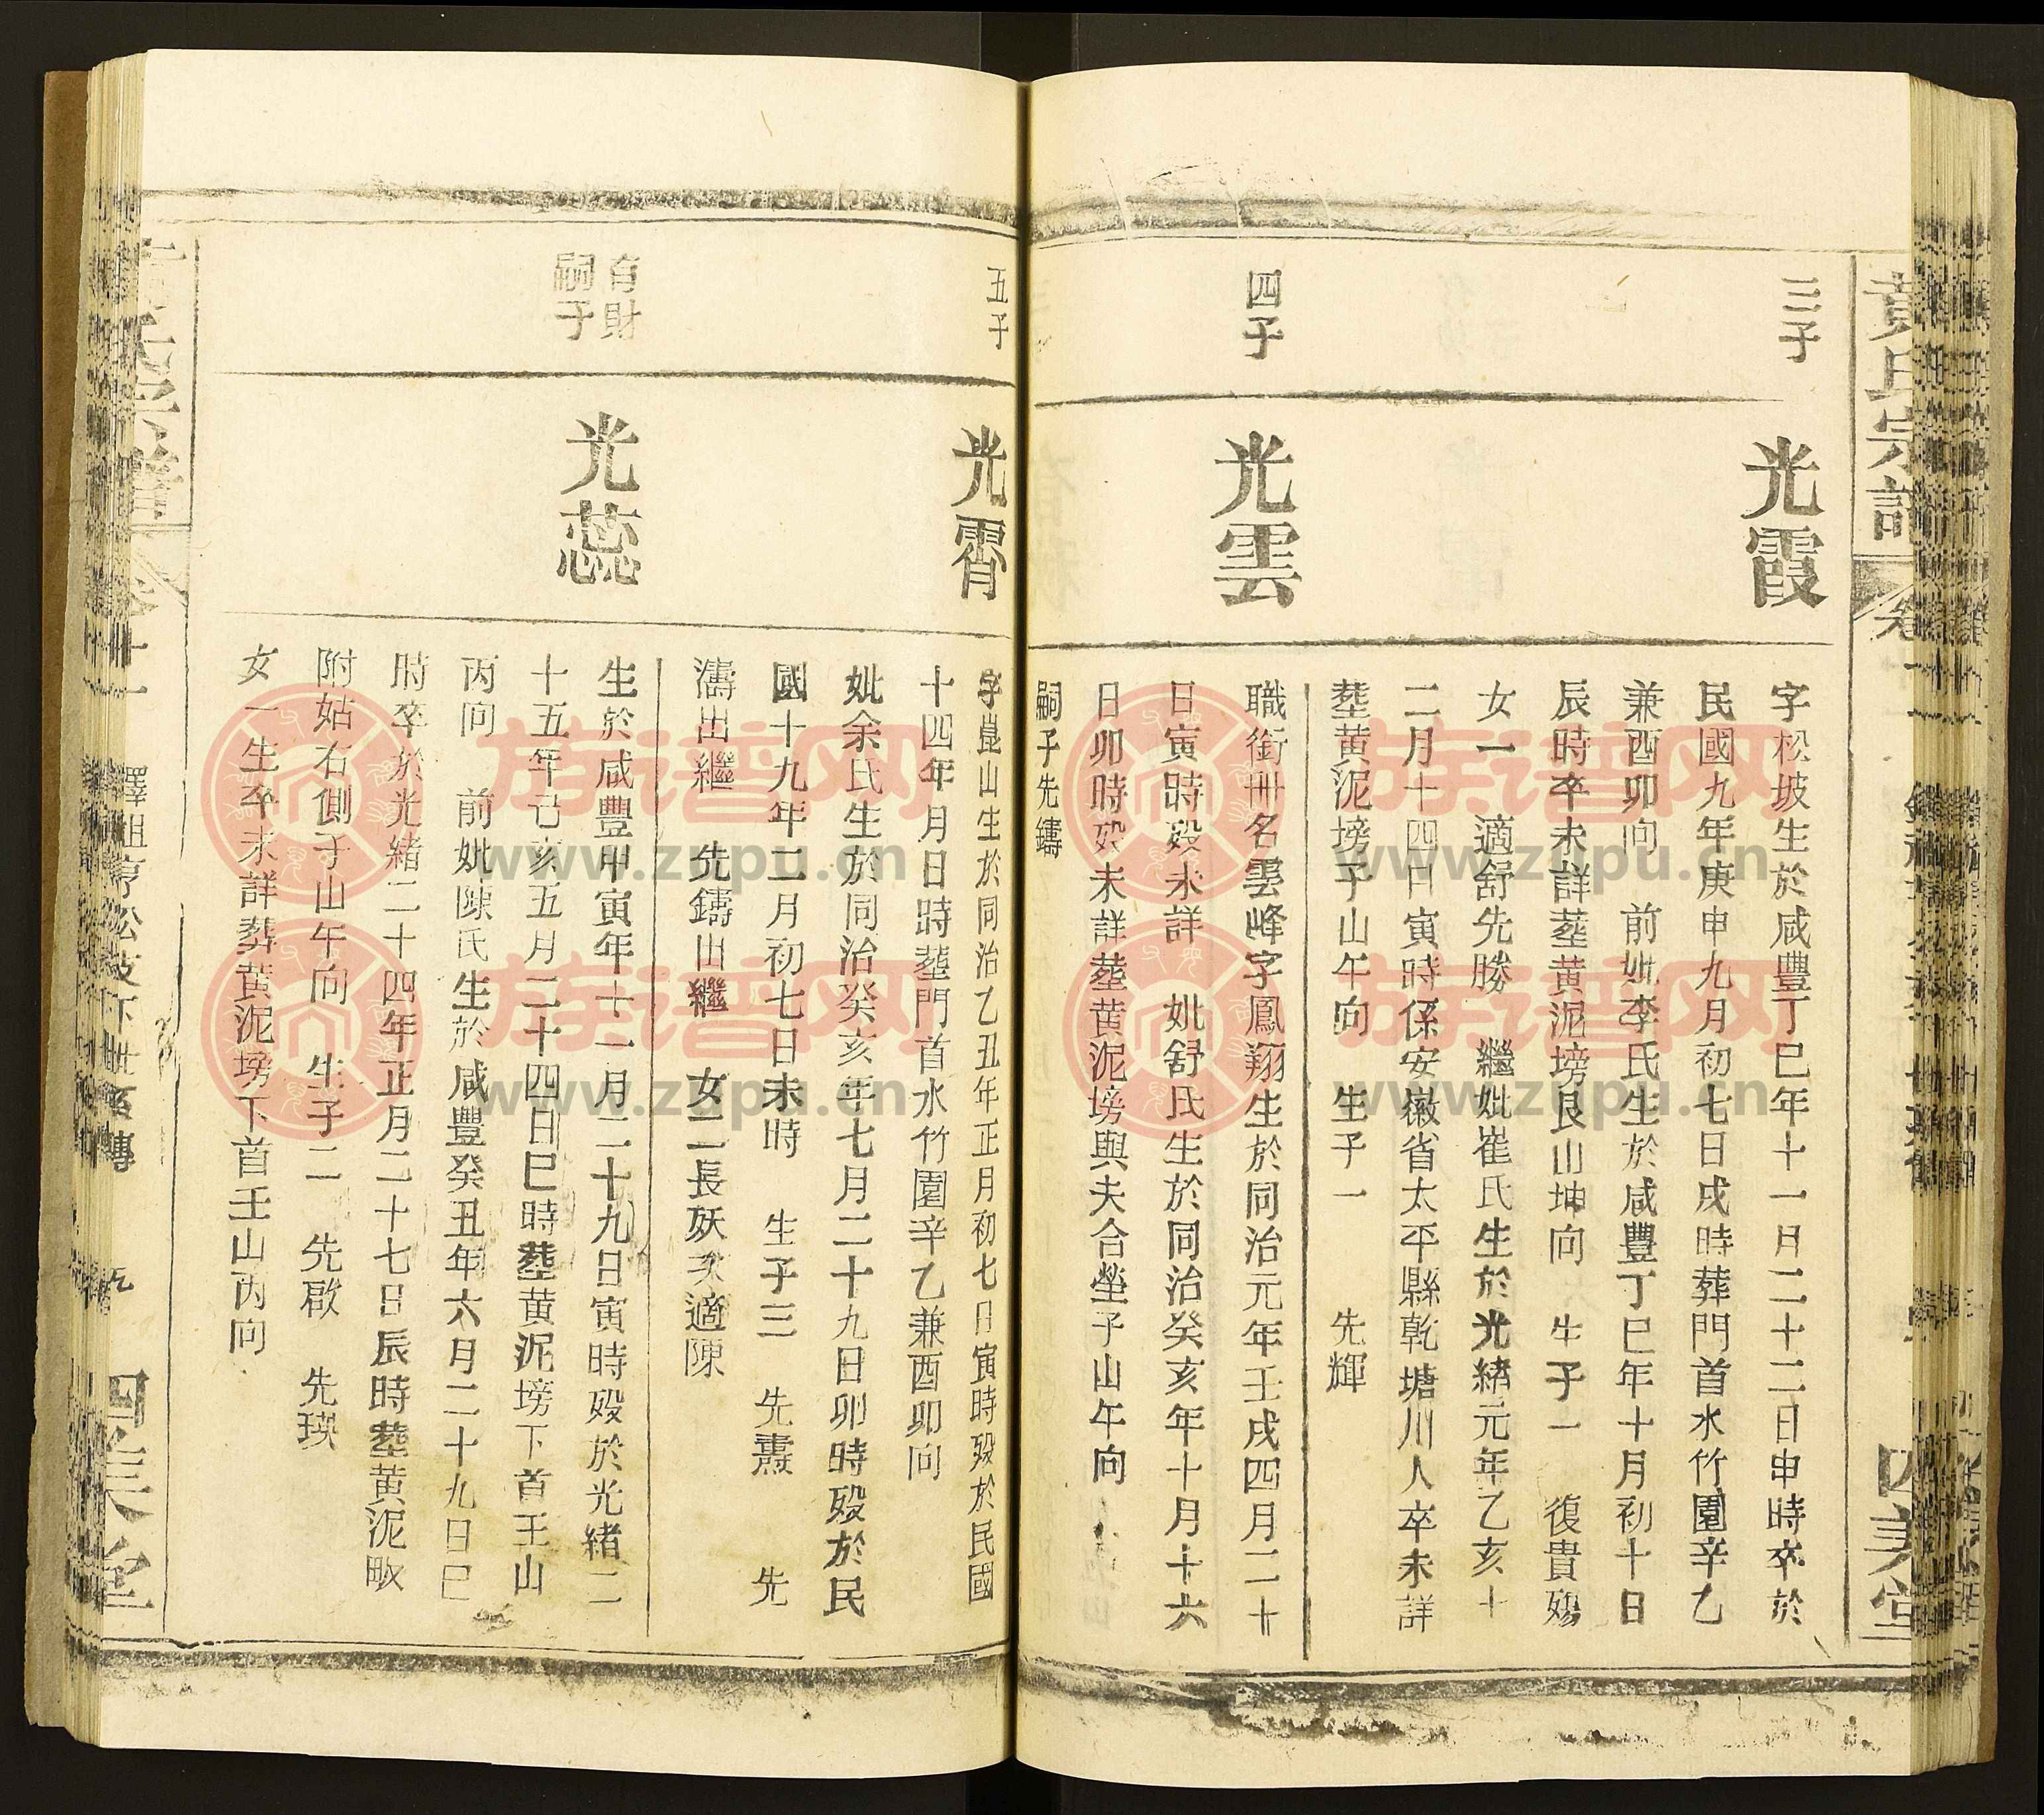 黃氏宗譜
卷十一
四美堂
三子
光霞
字松坡生於咸豐丁巳年十一月二十二日申時卒於
民國九年庚申九月初七日戌時葬門首水竹園辛乙
兼酉卯向 前妣李氏生於咸豐丁巳年十月初十日
辰時卒未詳塟黃泥塝艮山坤向 生子一 復貴殤
女一 適舒先勝 繼妣崔氏生於光緒元年乙亥十
二月十四日寅時係安徽省太平縣乾塘川人卒未詳
塟黃泥塝子山午向 生子一 先輝
四子
光雲
職銜卌名雲峰字鳳翔生於同治元年壬戌四月二十
日寅時殁未詳 妣舒氏生於同治癸亥年十月十六
日卯時殁未詳塟黃泥塝與夫合塋子山午向
嗣子先鑄
五子
光霄
字崑山生於同治乙丑年正月初七日寅時殁於民國
十四年月日時塟門首水竹園辛乙兼酉卯向
妣余氏生於同治癸亥年七月二十九日卯時殁於民
國十九年二月初七日未時 生子三 先燾 先
濤出繼 先鑄出繼 女二長妖次適陳
有財
嗣子
光蕊
生於咸豐甲寅年十一月二十九日寅時殁於光緒二
十五年己亥五月二十四日巳時塟黃泥塝下首壬山
丙向 前妣陳氏生於咸豐癸丑年六月二十九日巳
時卒於光緒二十四年正月二十七日辰時塟黃泥畈
附姑右側子山午向 生子二 先啟 先瑛
女一生卒未詳葬黃泥塝下首壬山丙向
氏宗譜
卷十一
九
四美堂
族谱网
www.zupu.cn
族谱网
www.zupu.cn
族谱网
www.zupu.cn
族谱网
www.zupu.cn